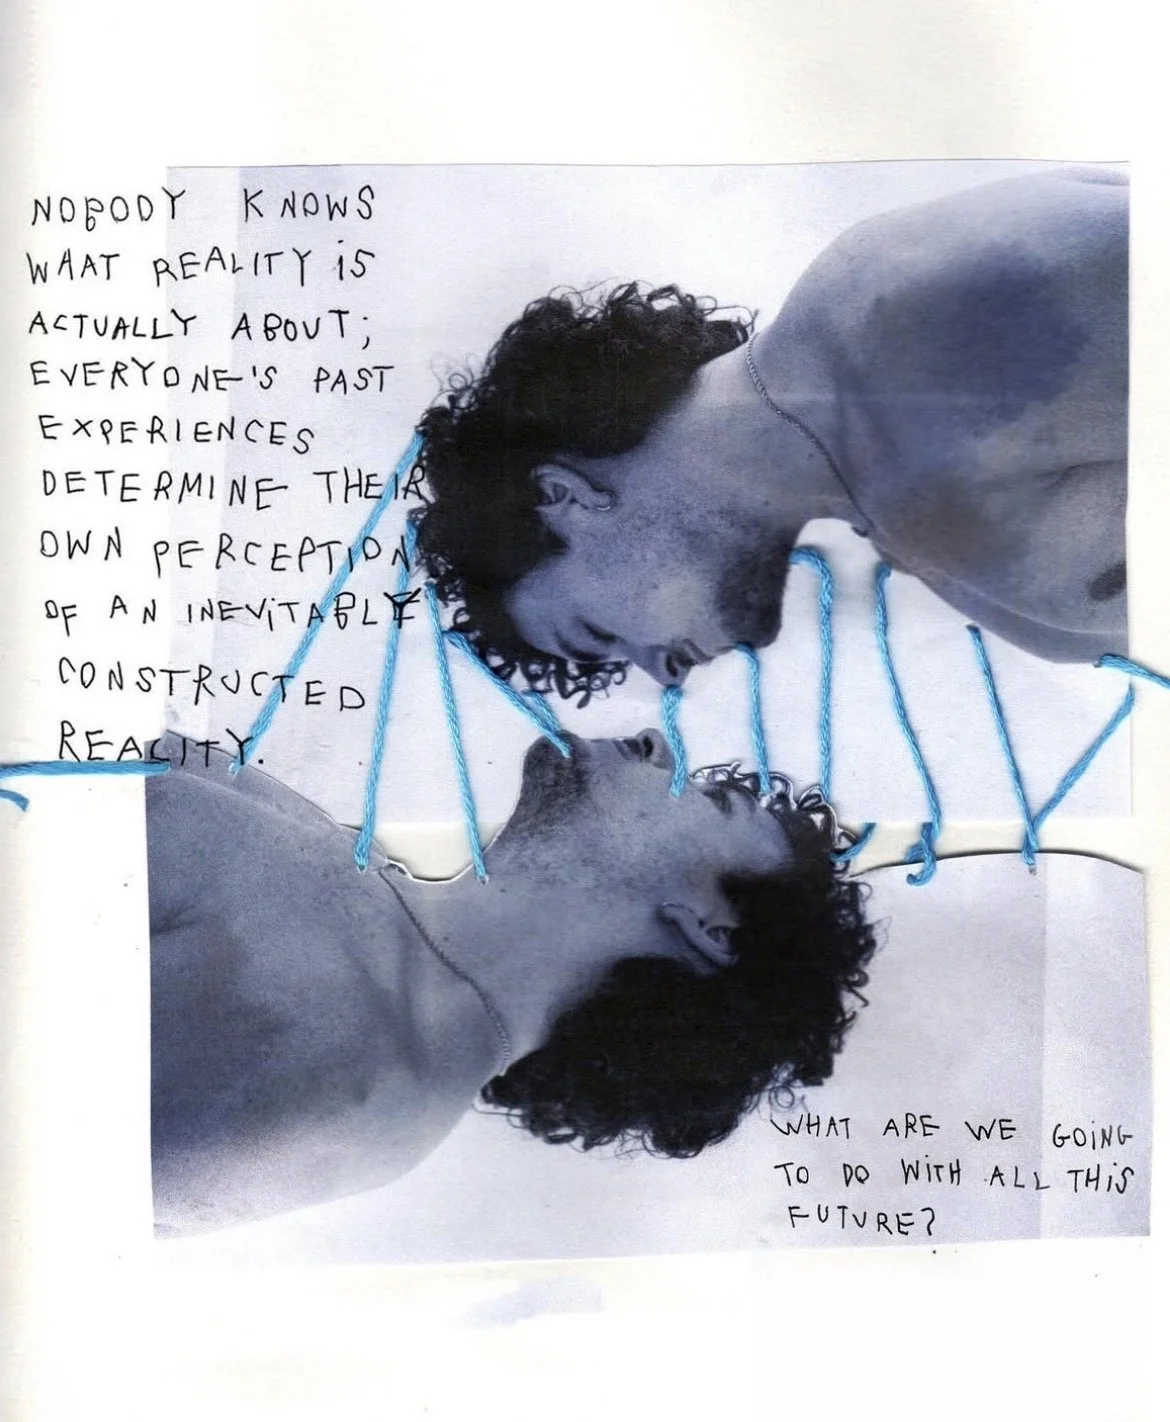 NOBODY KNOWS
WHAT REALITY iS
ACTUALLY ABOUT;
EVERYONE'S PAST
EXPERIENCES
DETERMINE THEIR
OWN PERCEPTION
OF AN INEViTABLE
CONSTRUCTED
REALITY.
WHAT ARE WE GOiNG
TO DO WiTH ALL THiS
FUTURE?